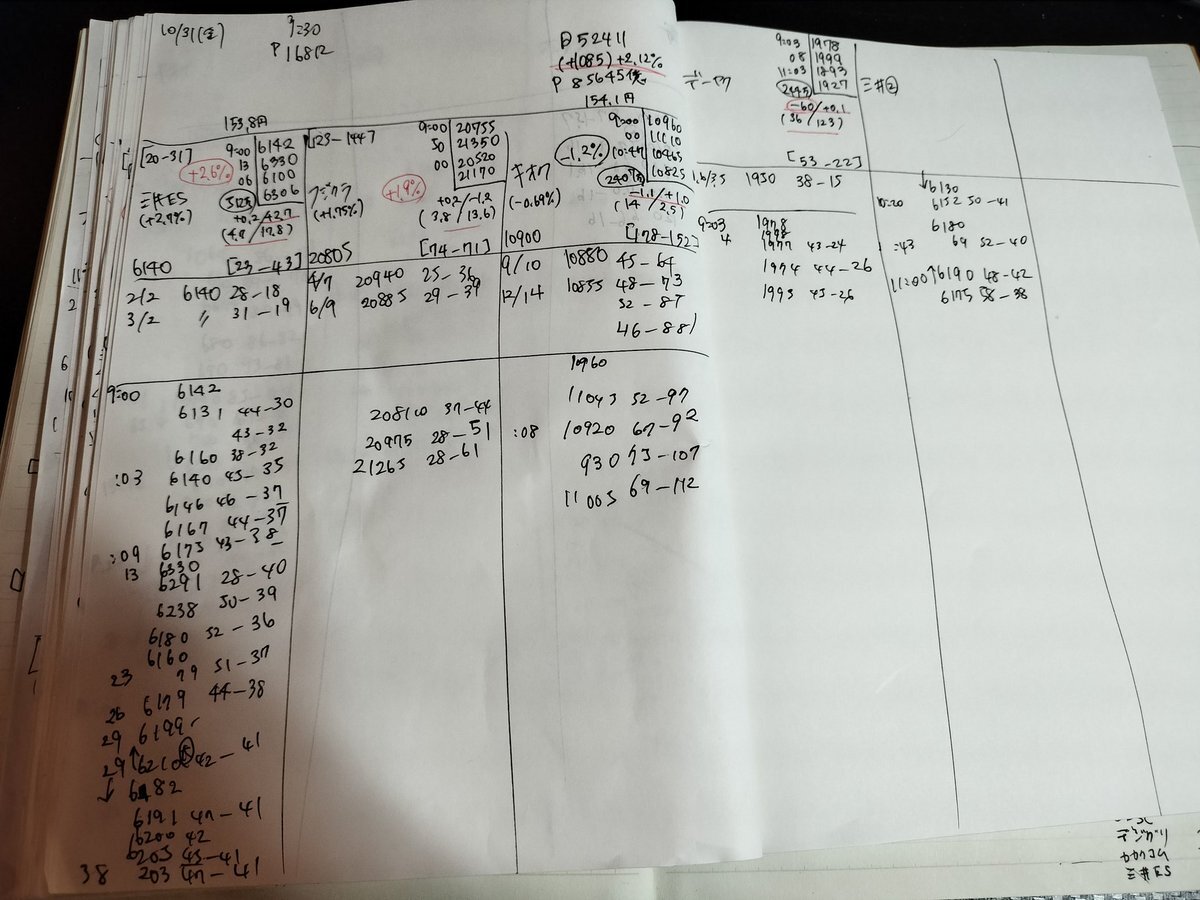 10/31(金)
7:30
P 16812
D 52411
(+1085) +2.12%
P 85645億
154.1円
153.8円
[20-31]
+2.6%
三井ES
(+2.9%)
9:00 6142
13 6330
06 6100
6306
(4.8/17.8)
6140 [23-43]
2/2 6140 28-18
3/2 〃 31-19
9:00 6142
6131 44-30
43-32
6160 38-32
:03 6140 45-35
6146 46-37
6167 44-37
:09 6173 43-38
13 6330
6291 28-40
6238 50-39
6180 52-36
6160
23 79 51-37
26 6179 44-38
29 6199
29 ↑6210 42-41
↓ 6182
6191 47-41
6200 42
6205 43-41
38 203 47-41
[123-144]
フジクラ
(+1.75%)
+1.9%
9:00 20755
50 21350
00 20520
21170
+0.2/-1.2
(3.8/13.6)
20805 [74-71]
4/7 20940 25-36
6/9 20885 29-39
208100 37-44
20975 28-51
21265 28-61
キオク
(-0.69%)
-1.2%
9:00 10960
00 11110
10:47 10465
10825
-1.1/+1.0
(14/2.5)
10900 [178-152]
9/10 10880 45-64
12/14 10855 48-73
52-87
46-88
10960
11043 52-97
:08 10920 67-92
930 73-107
11005 69-112
データク
9:03 1978
08 1999
11:03 1893
1927
-60/+0.1
(36/123)
三井②
[53-22]
1930 38-15
9:03 1978
4 1977 43-24
1974 44-26
1993 43-26
↓6130
10:20 6152 50-41
6180
:43 69 52-40
11:00 ↑6190 48-42
6175 58-38
三井ES
キオクシ
フジクラ